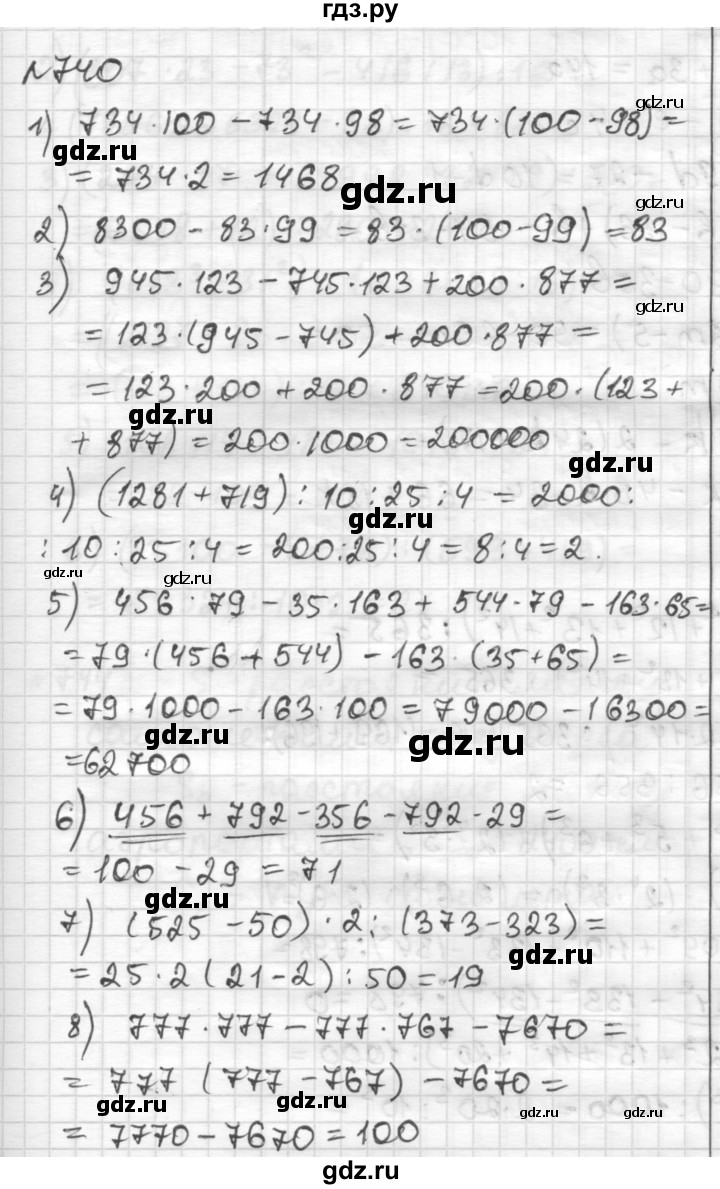 гдз.ру
№740
gdz.ru
1) 734·100 - 734·98 = 734·(100-98) =
gdz.ru
gdz.ru
= 734·2 = 1468
gdz.ru
gdz.ru
2) 8300 - 83·99 = 83·(100-99) = 83
3) 945·123 - 745·123 + 200·877 =
gdz.ru
= 123·(945-745) + 200·877 =
= 123·200 + 200·877 = 200·(123 +
gdz.ru
+ 877) = 200·1000 = 200000
gdz.ru
4) (1281+719) : 10 : 25 : 4 = 2000 :
gdz.ru
: 10 : 25 : 4 = 200 : 25 : 4 = 8 : 4 = 2.
gdz.ru gdz.ru
5) 456·79 - 35·163 + 544·79 - 163·65 =
= 79·(456+544) - 163·(35+65) =
= 79·1000 - 163·100 = 79000 - 16300 =
gdz.ru gdz.ru
= 62700
6) 456 + 792 - 356 - 792 - 29 =
= 100 - 29 = 71
gdz.ru
7) (525-50)·2 : (373-323) =
gdz.ru
= 25·2(21-2) : 50 = 19
8) 777·777 - 777·767 - 7670 =
= 777 (777-767) - 7670 =
gdz.ru gdz.ru
gdz.ru
= 7770 - 7670 = 100
gdz.ru